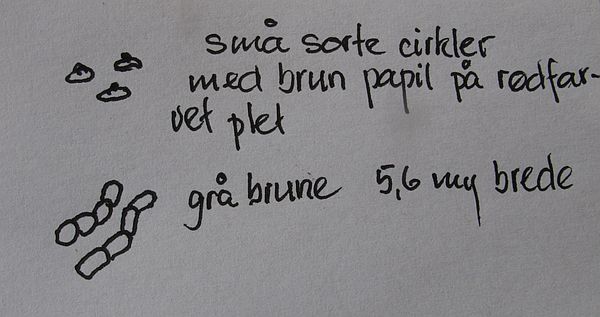 små sorte cirkler
med brun papil på rødfar-
vet plet
grå brune 5,6 my brede